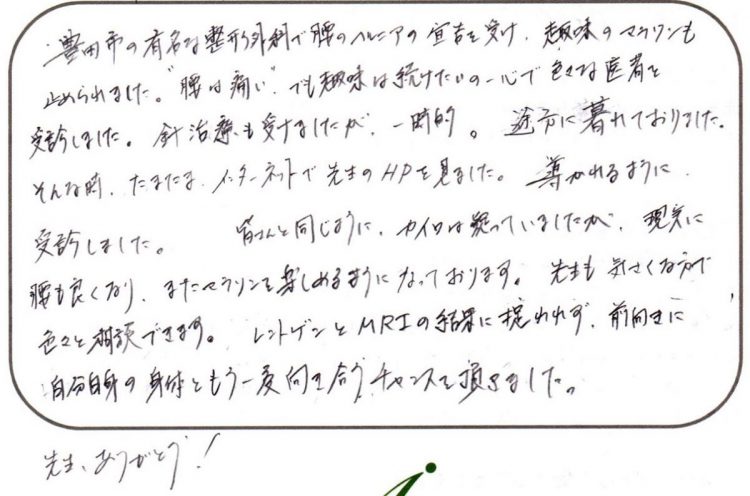 豊田市の有名な整形外科で腰のヘルニアの宣告を受け、趣味のマラソンも
止められました。"腰は痛い"でも趣味は続けたいの一心で色々な医者を
受診しました。針治療も受けましたが、一時的。途方に暮れておりました。
そんな時、たまたま、インターネットで先生のHPを見ました。導かれるように、
受診しました。皆さんと同じように、カイロは疑っていましたが、現実に
腰も良くなり、またマラソンを楽しめるようになっております。先生も気さくな方で
色々と相談できます。レントゲンとMRIの結果に捉われず、前向きに
自分自身の身体ともう一度向き合うチャンスを頂きました。
先生、ありがとう!